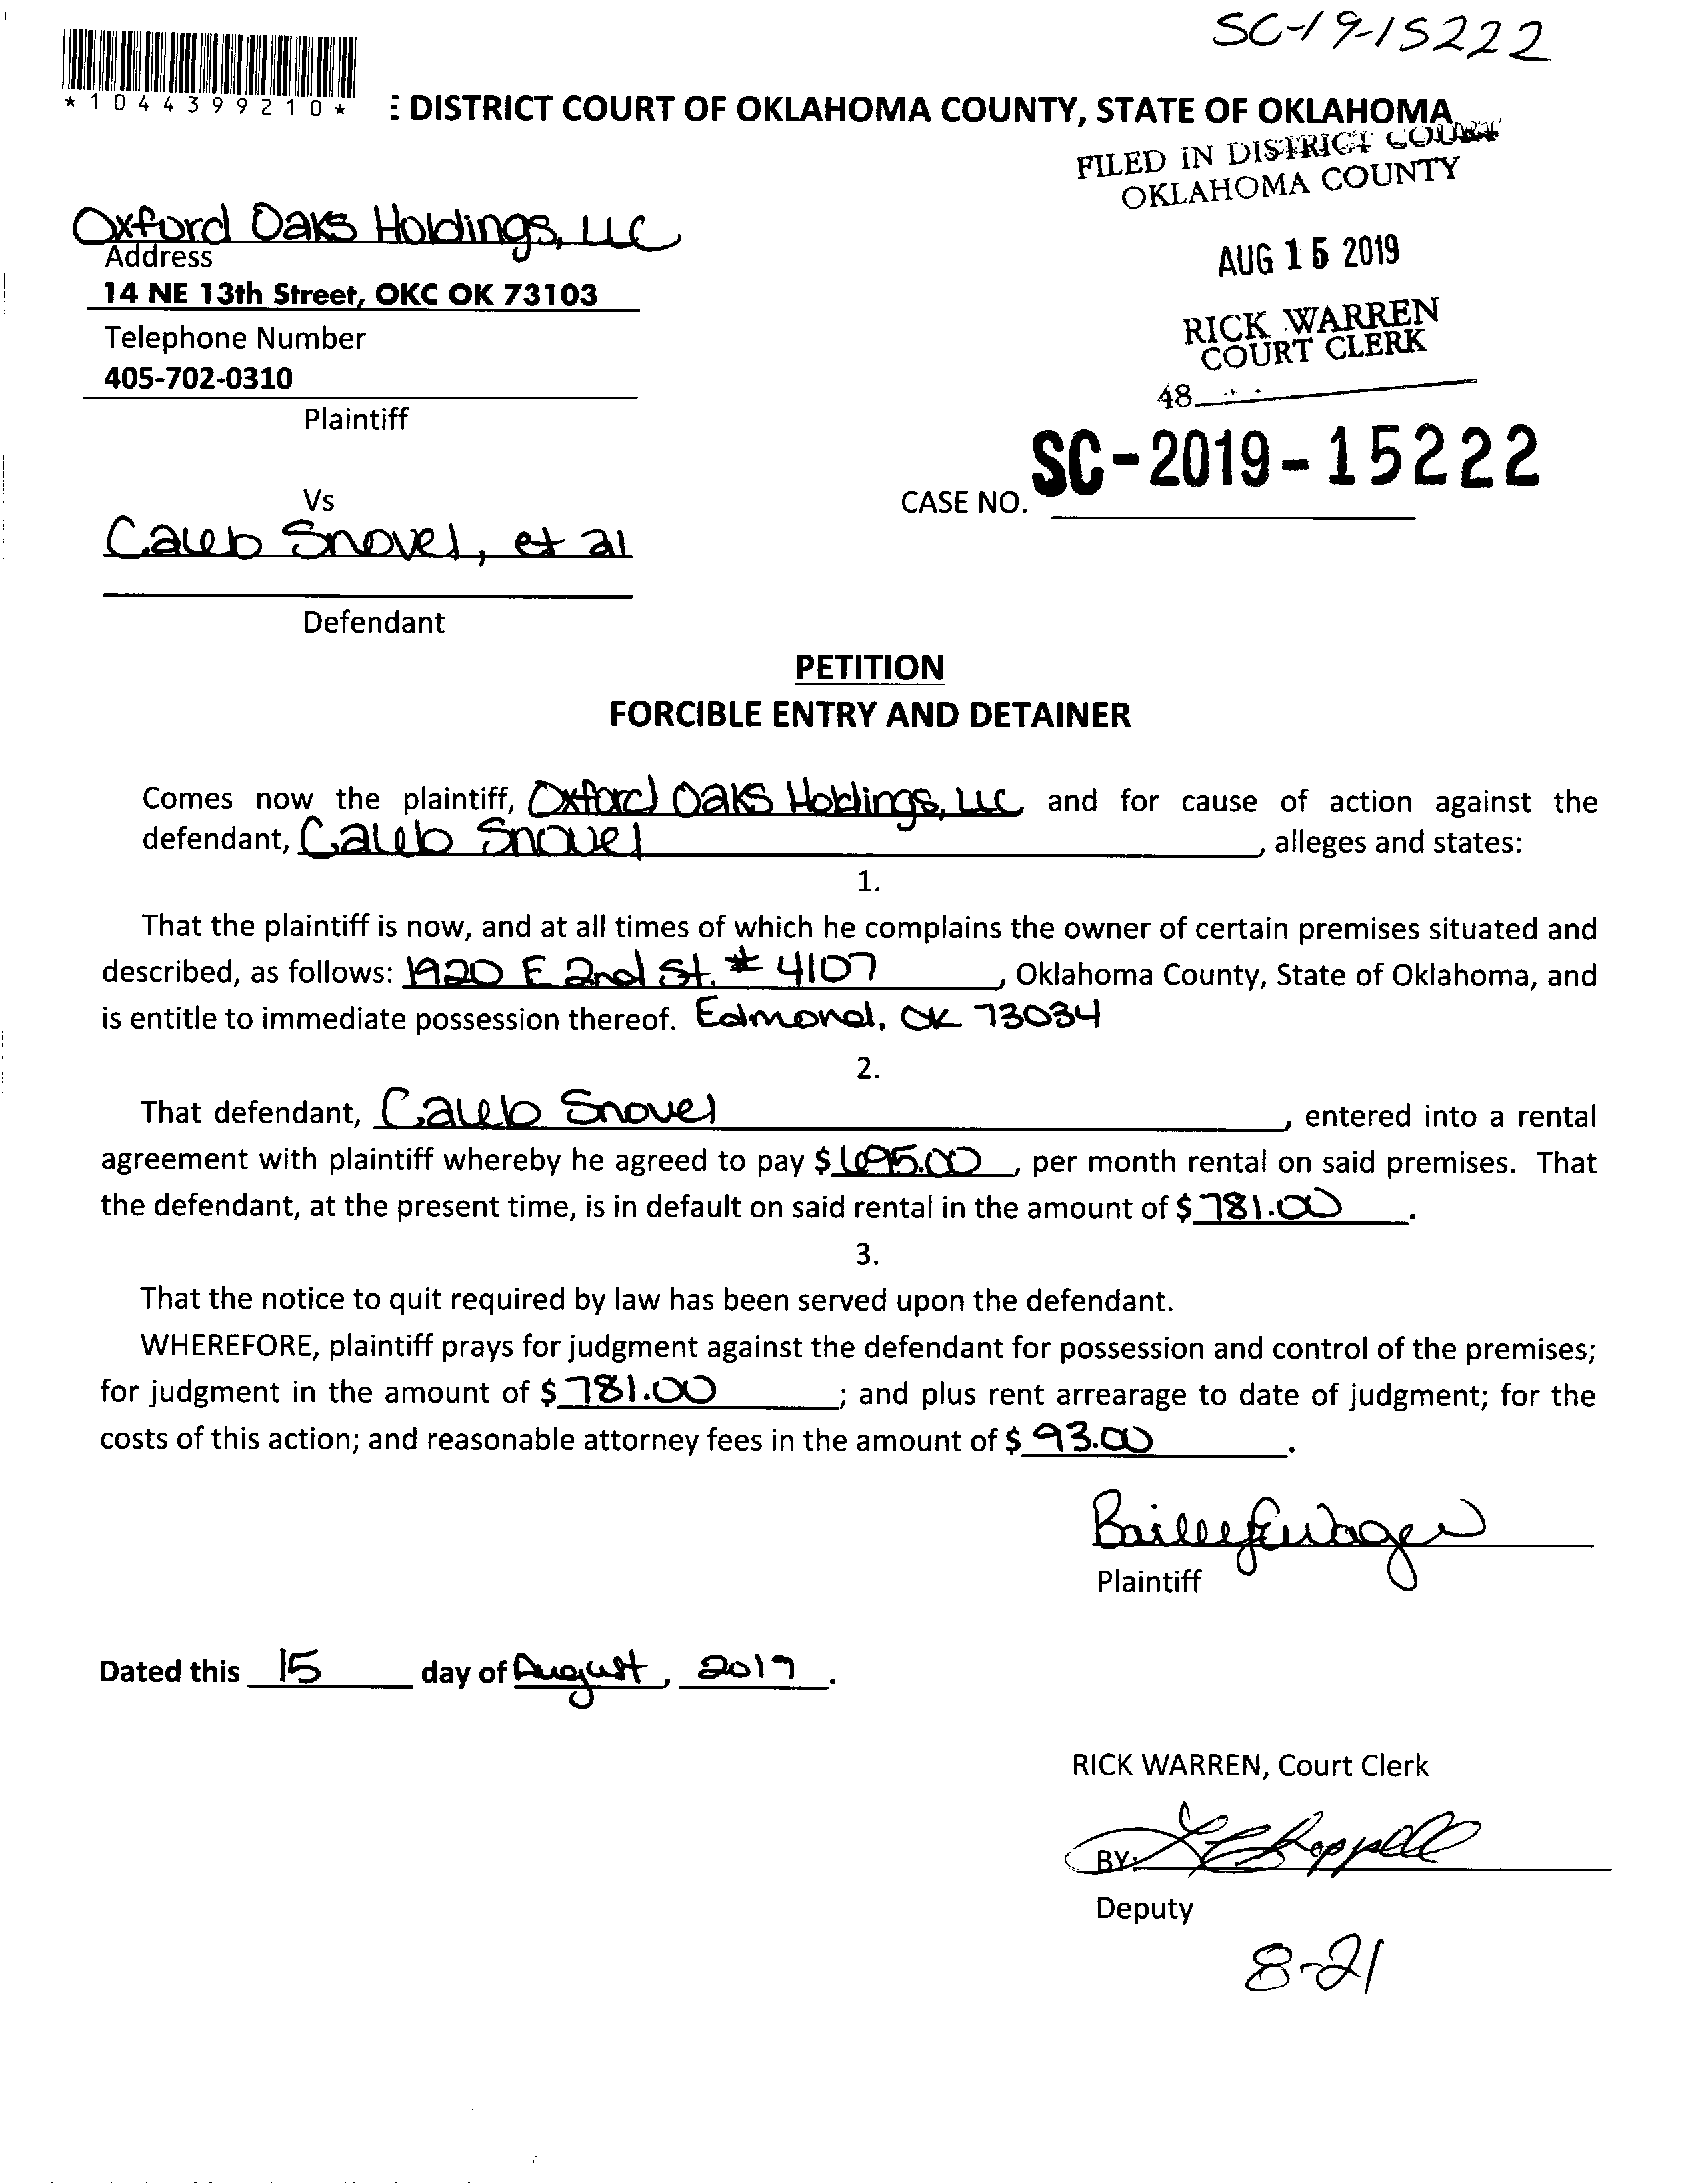 SC-19-15222
*1044399210*
: DISTRICT COURT OF OKLAHOMA COUNTY, STATE OF OKLAHOMA
FILED IN DISTRICT COURT
OKLAHOMA COUNTY
Oxford Oaks Holdings, LLC
Address
AUG 15 2019
14 NE 13th Street, OKC OK 73103
Telephone Number
RICK WARREN
COURT CLERK
405-702-0310
48
Plaintiff
SC-2019-15222
Vs
CASE NO.
Caleb Snovel, et al
Defendant
PETITION
FORCIBLE ENTRY AND DETAINER
Comes now the plaintiff, Oxford Oaks Holdings, LLC and for cause of action against the
defendant, Caleb Snovel, alleges and states:
1.
That the plaintiff is now, and at all times of which he complains the owner of certain premises situated and
described, as follows: 1920 E 2nd St. # 4107, Oklahoma County, State of Oklahoma, and
is entitle to immediate possession thereof. Edmond, OK 73034
2.
That defendant, Caleb Snovel, entered into a rental
agreement with plaintiff whereby he agreed to pay $ 695.00, per month rental on said premises. That
the defendant, at the present time, is in default on said rental in the amount of $ 781.00.
3.
That the notice to quit required by law has been served upon the defendant.
WHEREFORE, plaintiff prays for judgment against the defendant for possession and control of the premises;
for judgment in the amount of $ 781.00; and plus rent arrearage to date of judgment; for the
costs of this action; and reasonable attorney fees in the amount of $ 93.00.
Plaintiff
Dated this 15 day of August, 2019.
RICK WARREN, Court Clerk
BY:
Deputy
8-21